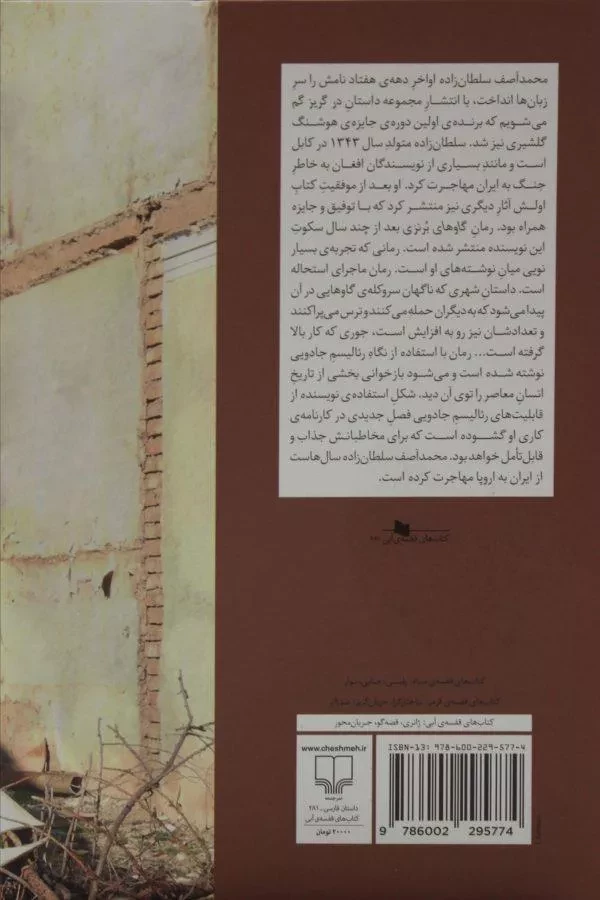 محمدآصف سلطان‌زاده اواخرِ دهه‌ی هفتاد نامش را سرِ
زبان‌ها انداخت، با انتشارِ مجموعه داستانِ در گریز گم
می‌شویم که برنده‌ی اولین دوره‌ی جایزه‌ی هوشنگ
گلشیری نیز شد. سلطان‌زاده متولدِ سال ۱۳۴۳ در کابل
است و مانندِ بسیاری از نویسندگان افغان به خاطرِ
جنگ به ایران مهاجرت کرد. او بعد از موفقیتِ کتابِ
اولش آثارِ دیگری نیز منتشر کرد که با توفیق و جایزه
همراه بود. رمانِ گاوهای بُرنزی بعد از چند سال سکوتِ
این نویسنده منتشر شده است. رمانی که تجربه‌ی بسیار
نویی میانِ نوشته‌های او است. رمان ماجرای استحاله
است. داستانِ شهری که ناگهان سروکله‌ی گاوهایی در آن
پیدا می‌شود که به دیگران حمله می‌کنند و ترس می‌پراکنند
و تعدادشان نیز رو به افزایش است، جوری که کار بالا
گرفته است... رمان با استفاده از نگاهِ رئالیسمِ جادویی
نوشته شده است و می‌شود بازخوانی بخشی از تاریخِ
انسانِ معاصر را توی آن دید. شکلِ استفاده‌ی نویسنده از
قابلیت‌های رئالیسمِ جادویی فصلِ جدیدی در کارنامه‌ی
کاری او گشوده است که برای مخاطبانش جذاب و
قابل‌تأمل خواهد بود. محمدآصف سلطان‌زاده سال‌هاست
از ایران به اروپا مهاجرت کرده است.
کتاب‌های قفسه‌ی آبی
کتاب‌های قفسه‌ی آبی: ژانری، قصه‌گو، جریان‌محور
www.cheshmeh.ir
نشرچشمه
داستان فارسی - ۲۸۱
کتاب‌های قفسه‌ی آبی
۲۰۰۰۰ تومان
ISBN-13: 978-600-229-577-4
9 786002 295774